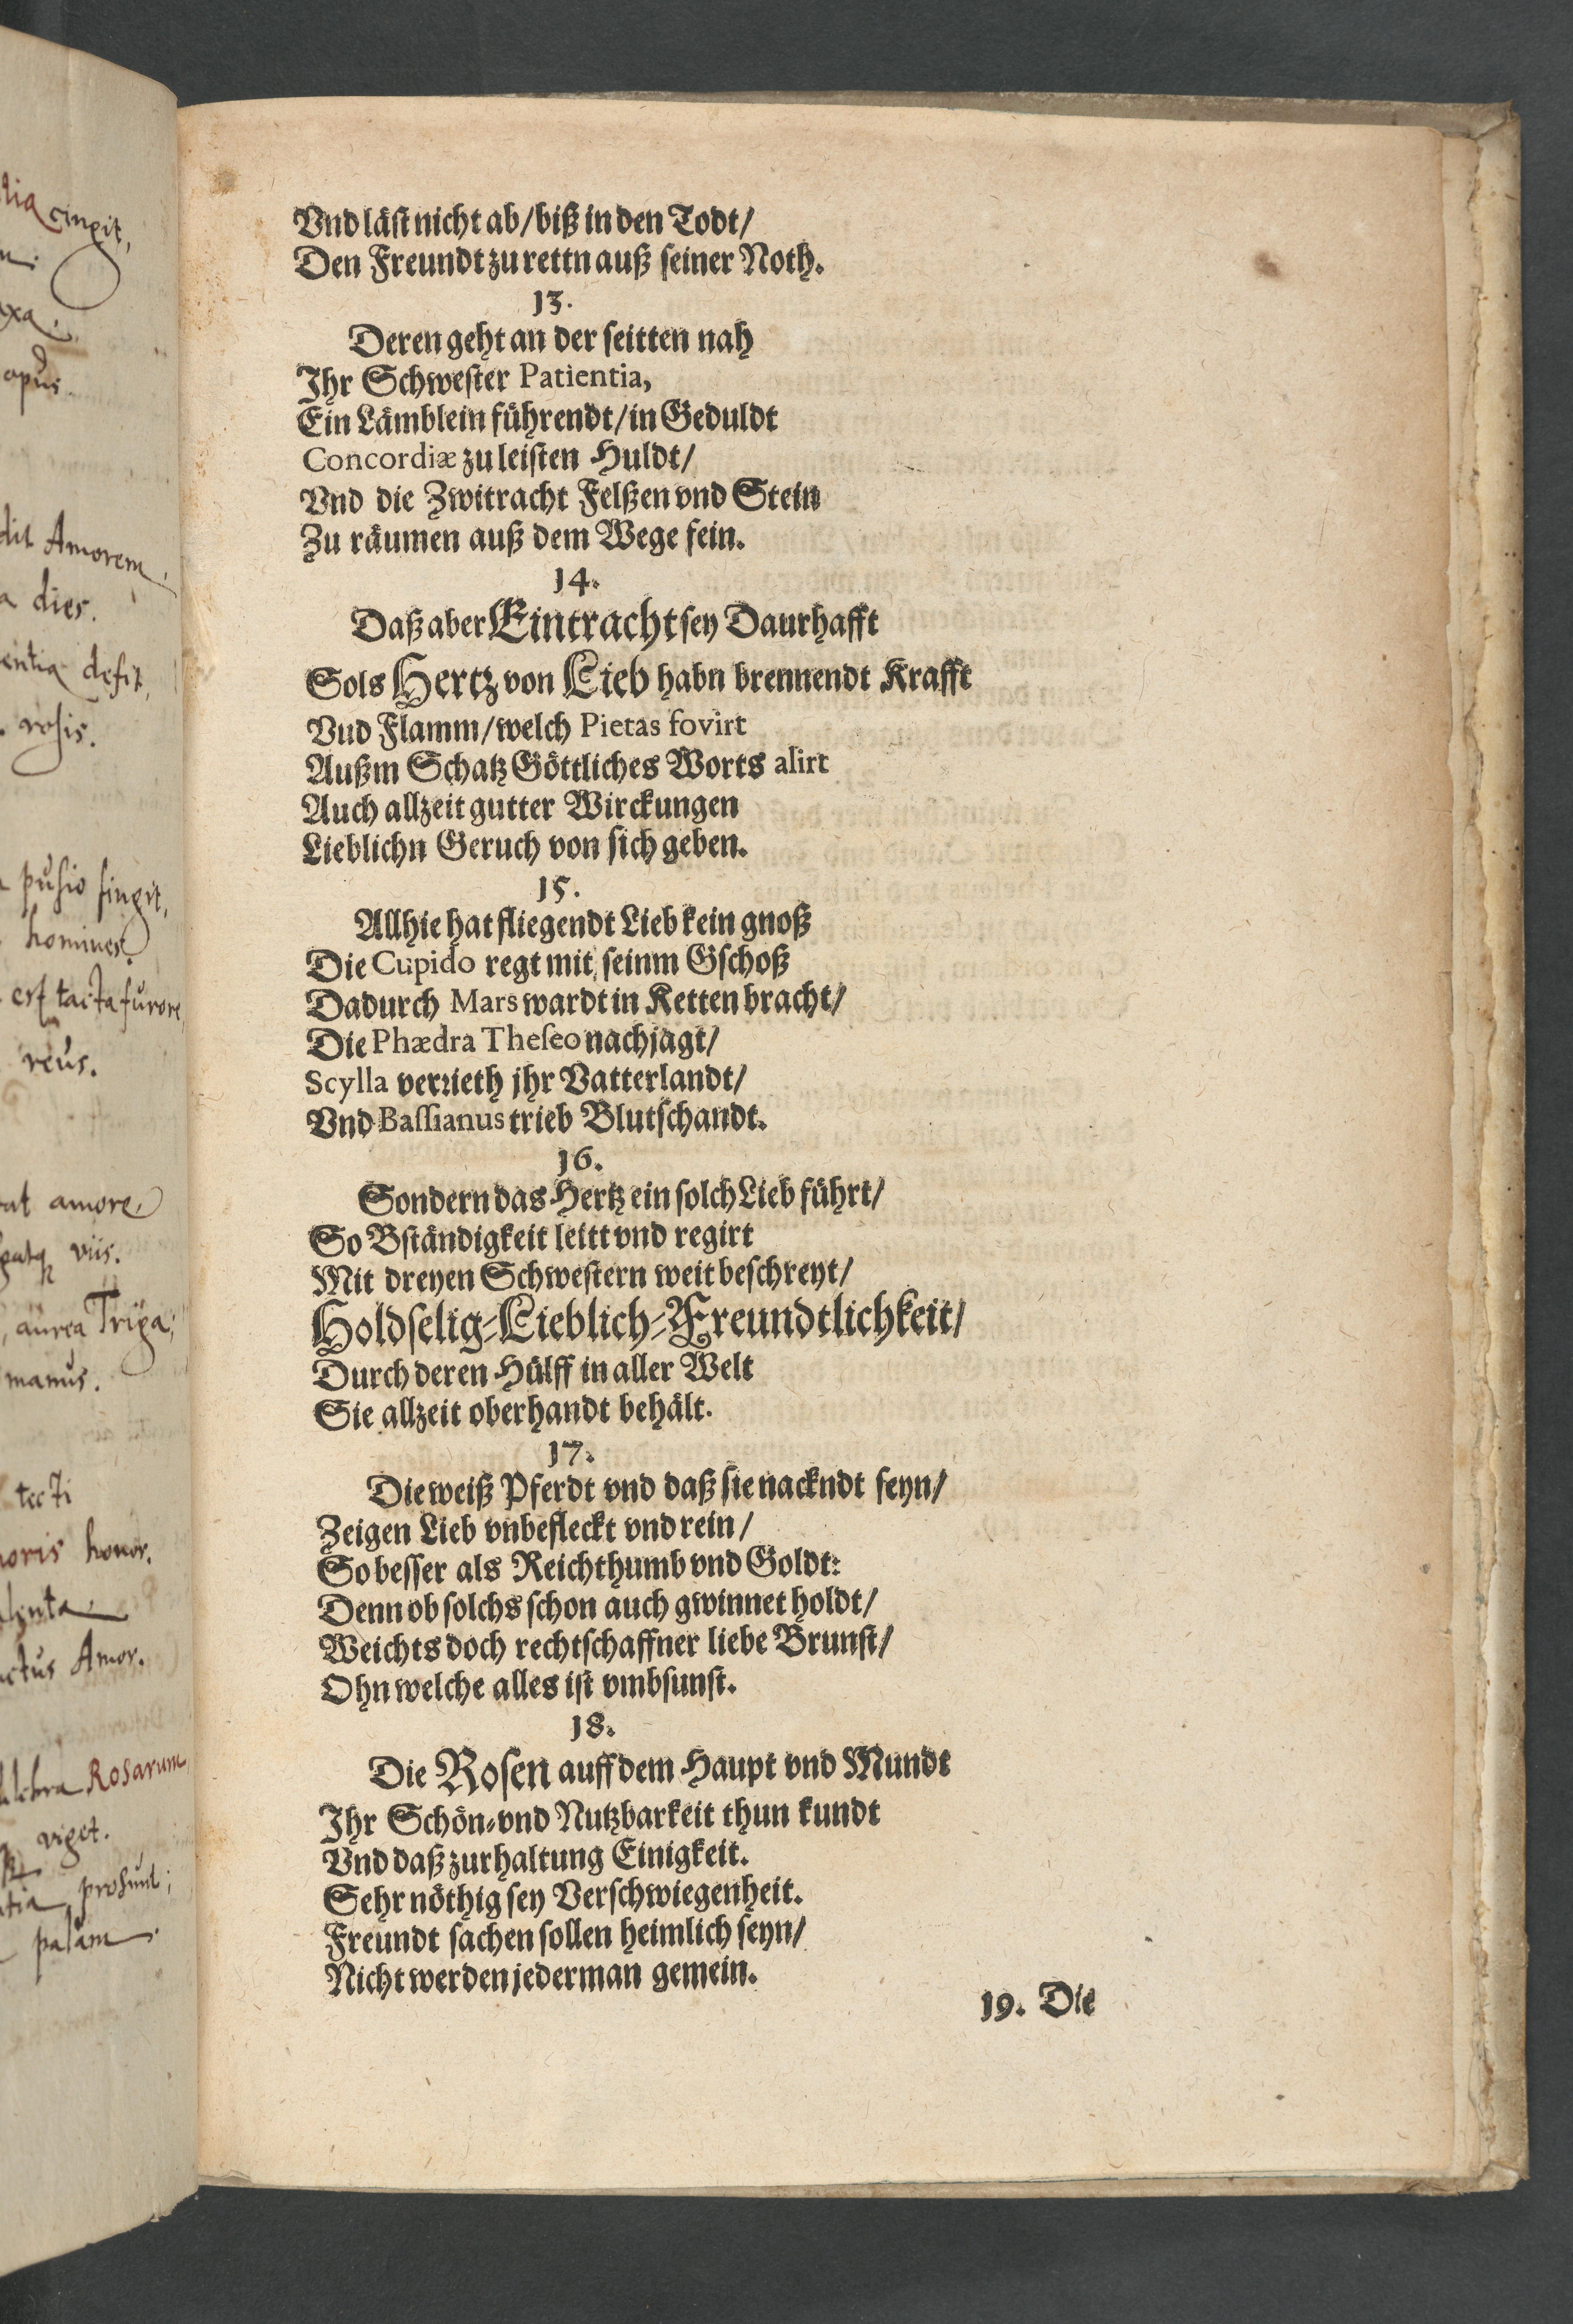 Vnd läst nicht ab/ biß in den Todt/
Den Freundt zu rettn auß seiner Noth.
13.
Deren geht an der seitten nah
Ihr Schwester Patientia,
Ein Lämblein führendt/ in Geduldt
Concordiæ zu leisten Huldt/
Vnd die Zwitracht Felßen vnd Stein
Zu räumen auß dem Wege fein.
14.
Daß aber Eintracht sey Daurhafft
Sols Hertz von Lieb habn brennendt Krafft
Vud Flamm/ welch Pietas fovirt
Außm Schatz Göttliches Worts alirt
Auch allzeit gutter Wirckungen
Lieblichn Geruch von sich geben.
15.
Allhie hat fliegendt Lieb kein gnoß
Die Cupido regt mit seinm Gschoß
Dadurch Mars wardt in Ketten bracht/
Die Phædra Theseo nachjagt/
Scylla verrieth jhr Vatterlandt/
Vnd Bassianus trieb Blutschandt.
16.
Sondern das Hertz ein solch Lieb führt/
So Bständigkeit leitt vnd regirt
Mit dreyen Schwestern weit beschreyt/
Holdselig-Lieblich-Freundtlichkeit/
Durch deren Hülff in aller Welt
Sie allzeit oberhandt behält.
17.
Die weiß Pferdt vnd daß sie nackndt seyn/
Zeigen Lieb vnbefleckt vnd rein/
So besser als Reichthumb vnd Goldt:
Denn ob solchs schon auch gwinnet holdt/
Weichts doch rechtschaffner liebe Brunst/
Ohn welche alles ist vmbsunst.
18.
Die Rosen auff dem Haupt vnd Mundt
Ihr Schön-vnd Nutzbarkeit thun kundt
Vnd daß zurhaltung Einigkeit.
Sehr nöthig sey Verschwiegenheit.
Freundt sachen sollen heimlich seyn/
Nicht werden jederman gemein.
19. Die
cingit,
opus.
Amorem,
dies.
defit,
rosis.
pusio fingit,
homines?
est tacta furore,
reus.
amore
viis.
aurea Triga;
manus.
tecti
honor.
Amor.
Rosarum
viget.
prosunt;
palam.